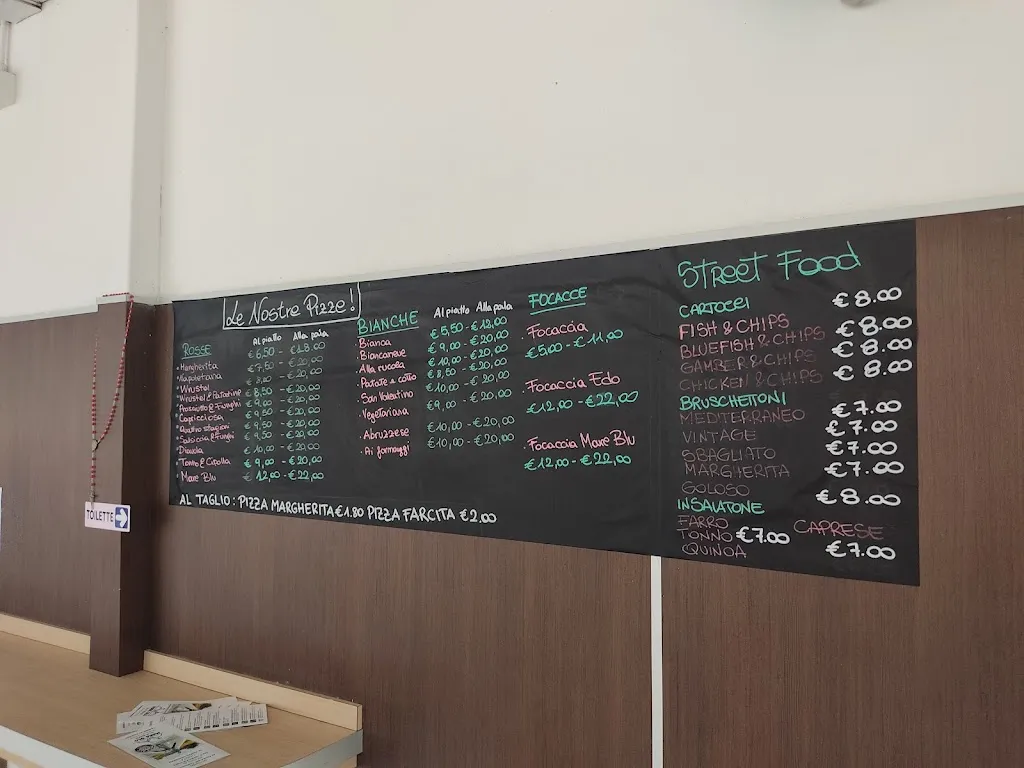 Le Nostre Pizze!
ROSSE Al piatto Alla pala
• Margherita € 6,50 - € 18,00
• Napoletana € 7,50 - € 20,00
• Wurstel € 8,00 - € 20,00
• Wurstel & Patatine € 8,50 - € 20,00
• Prosciutto & Funghi € 9,50 - € 20,00
• Capricciosa € 9,50 - € 20,00
• Quattro stagioni € 9,50 - € 20,00
• Salsiccia & Funghi € 9,50 - € 20,00
• Diavola € 10,00 - € 20,00
• Tonno & Cipolla € 9,00 - € 20,00
• Mare Blu € 12,00 - € 22,00
BIANCHE Al piatto Alla pala
Bianca € 5,50 - € 12,00
• Biancaneve € 9,00 - € 20,00
Alla rucola € 10,00 - € 20,00
• Patate e cotto € 8,50 - € 20,00
• San Valentino € 10,00 - € 20,00
• Vegetariana € 9,00 - € 20,00
• Abruzzese € 10,00 - € 20,00
• Ai formaggi € 10,00 - € 20,00
FOCACCE
• Focaccia
€ 5,00 - € 11,00
• Focaccia Edo
€ 12,00 - € 22,00
• Focaccia Mare Blu
€ 12,00 - € 22,00
AL TAGLIO: PIZZA MARGHERITA € 1.80 PIZZA FARCITA € 2.00
STREET FOOD
CARTOCCI
FISH & CHIPS € 8.00
BLUEFISH & CHIPS € 8.00
GAMBER & CHIPS € 8.00
CHICKEN & CHIPS € 8.00
BRUSCHETTONI
MEDITERRANEO € 7.00
VINTAGE € 7.00
SBAGLIATO € 7.00
MARGHERITA € 7.00
GOLOSO € 8.00
INSALATONE
FARRO CAPRESE
TONNO € 7.00 € 7.00
QUINOA
TOILETTE